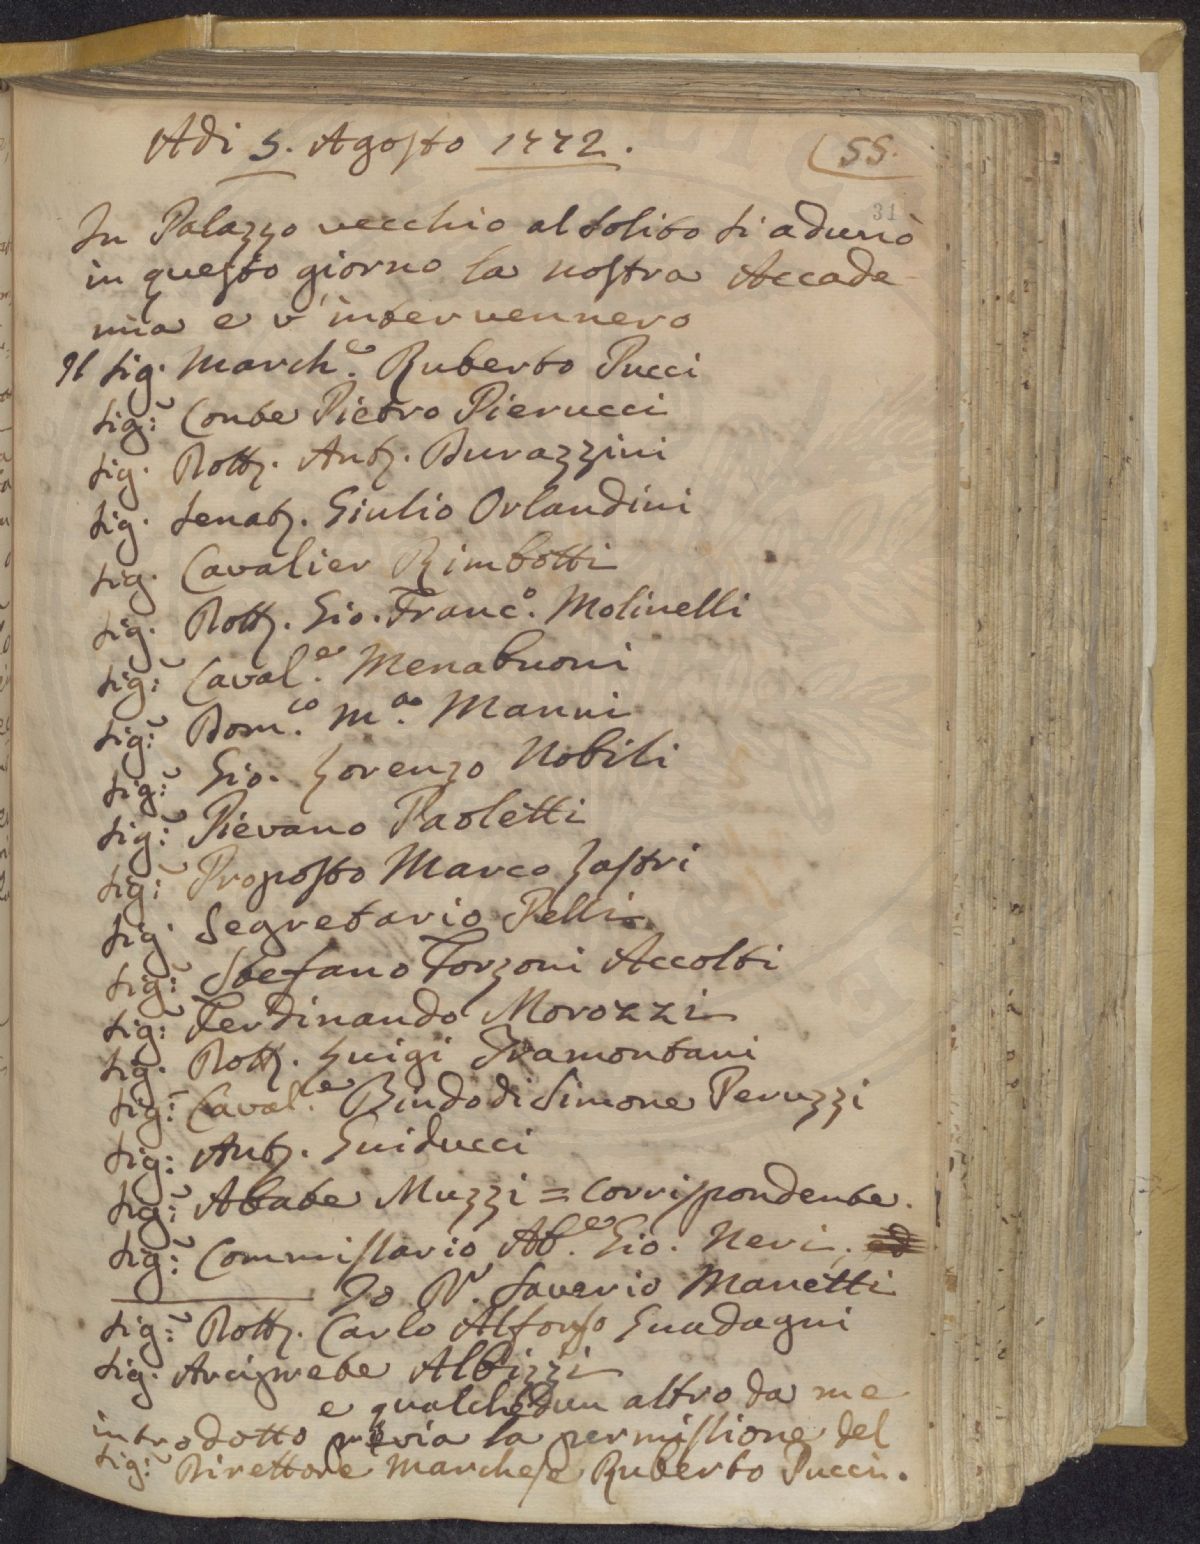 Adi 5. Agosto 1772.
55.
31
In Palazzo vecchio al solito si adunò
in questo giorno la nostra Accade
mia e v'intervennero
Il sig. March.e Ruberto Pucci
sig:r Conte Pietro Pierucci
sig. Dott. Ant. Durazzini
sig. Senat. Giulio Orlandini
sig. Cavalier Rimbotti
sig. Dott. Gio. Franc.o Molinelli
sig:r Caval.e Menabuoni
sig:r Dom.co M.a Manni
sig:r Gio. Lorenzo Nobili
sig:r Pievano Paoletti
sig:r Proposto Marco Lastri
sig. Segretario Pelli
sig:r Stefano Forzoni Accolti
sig:r Ferdinando Morozzi
sig. Dott. Luigi Tramontani
sig:r Caval.e Bindo di Simone Peruzzi
sig: Ant. Guiducci
sig:r Abate Muzzi = Corrispondente.
sig:r Commissario Ab.e Gio. Neri. ed
Io D.r Saverio Manetti
sig:r Dott. Carlo Alfonso Guadagni
sig. Arciprete Albizzi
e qualchedun altro da me
introdotto previa la permissione del
sig:r Direttore Marchese Ruberto Pucci.